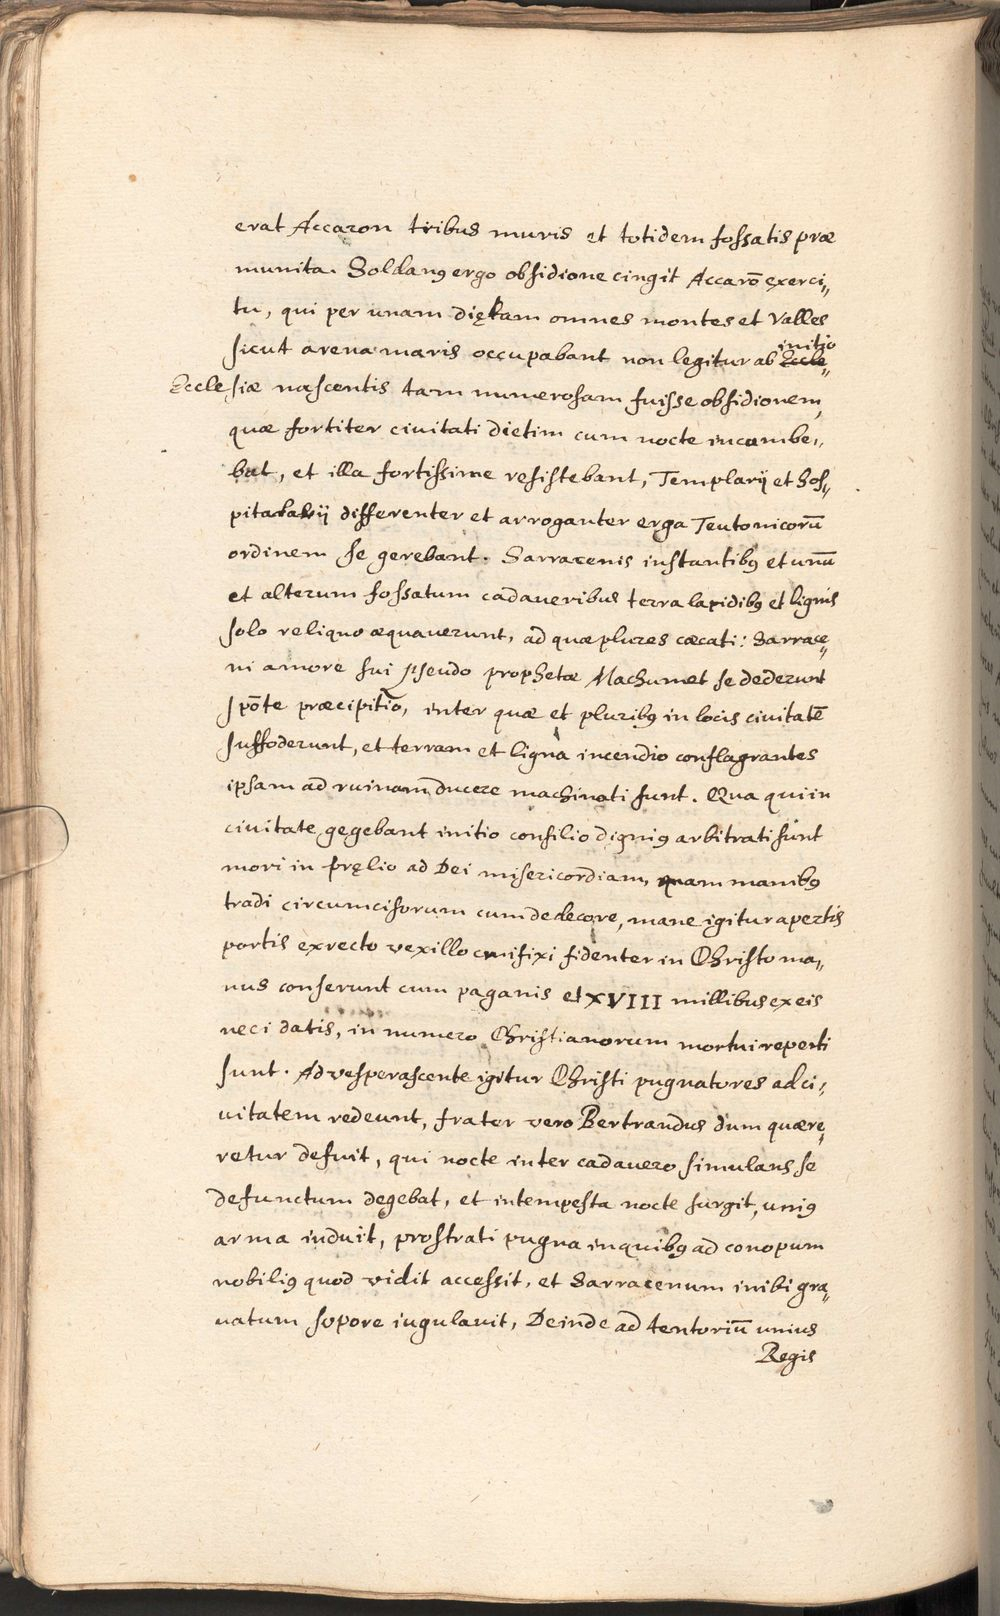 erat Accaron tribus muris et totidem fossatis præ
munita. Soldanꝰ ergo obsidione cingit Accarō exerci„
tu, qui per unam diękam omnes montes et Valles
sicut arena maris occupabant non legitur ab initio Eccle„
Ecclesiæ nascentis tam numerosam fuisse obsidionem,
quæ fortiter ciuitati dietim cum nocte incumbe„
bat, et illa fortissime resistebant, Templarij et Hos„
pitalarij differenter et arroganter erga Teutonicorū
ordinem se gerebant. Sarracenis instantibꝰ et unū
et alterum fossatum cadaueribus terra lapidibꝰ et lignis
solo reliquo æquauerunt, ad quæ plures cæcati: Sarrace„
ni amore sui pseudo prophetæ Machumet se dederunt
spōte præcipitio, inter quæ et pluribꝰ in locis ciuitatē
suffoderunt, et terram et ligna incendio conflagrantes
ipsam ad ruinam ducere machinati sunt. Qua qui in
ciuitate gegebant initio consilio digniꝰ arbitrati sunt
mori in pręlio ad Dei misericordiam, quam manibꝰ
tradi circumcisorum cum dedecore, mane igitur apertis
portis exrecto vexillo crucifixi fidenter in Christo ma„
nus conserunt cum paganis et XVIII millibus ex eis
neci datis, in numero Christianorum mortui reperti
sunt. Advesperascente igitur Christi pugnatores ad ci„
uitatem redeunt, frater vero Bertrandus dum quære„
retur defuit, qui nocte inter cadauero simulans se
defunctum degebat, et intempesta nocte surgit, uniꝰ
arma induit, prostrati pugna in quibꝰ ad conopum
nobiliꝰ quod vidit accessit, et Sarracenum inibi gra„
uatum sopore iugulauit, Deinde ad tentoriū unius
Regis